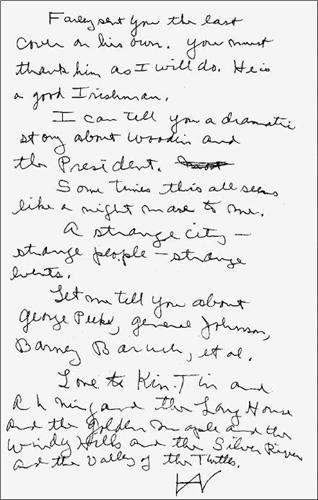 Farley sent you the last
cover on his own. You must
thank him as I will do. He is
a good Irishman.
I can tell you a dramatic
story about Woodin and
the President.
Some times this all seems
like a night mare to me.
A strange city —
strange people — strange
events.
Let me tell you about
George Peek, General Johnson,
Barney Baruch, et al.
Love to Kin-Tin and
and the Lazy House
and the Golden Maple and the
Windy Hills and the Silver River
and the Valley of the Turtles.